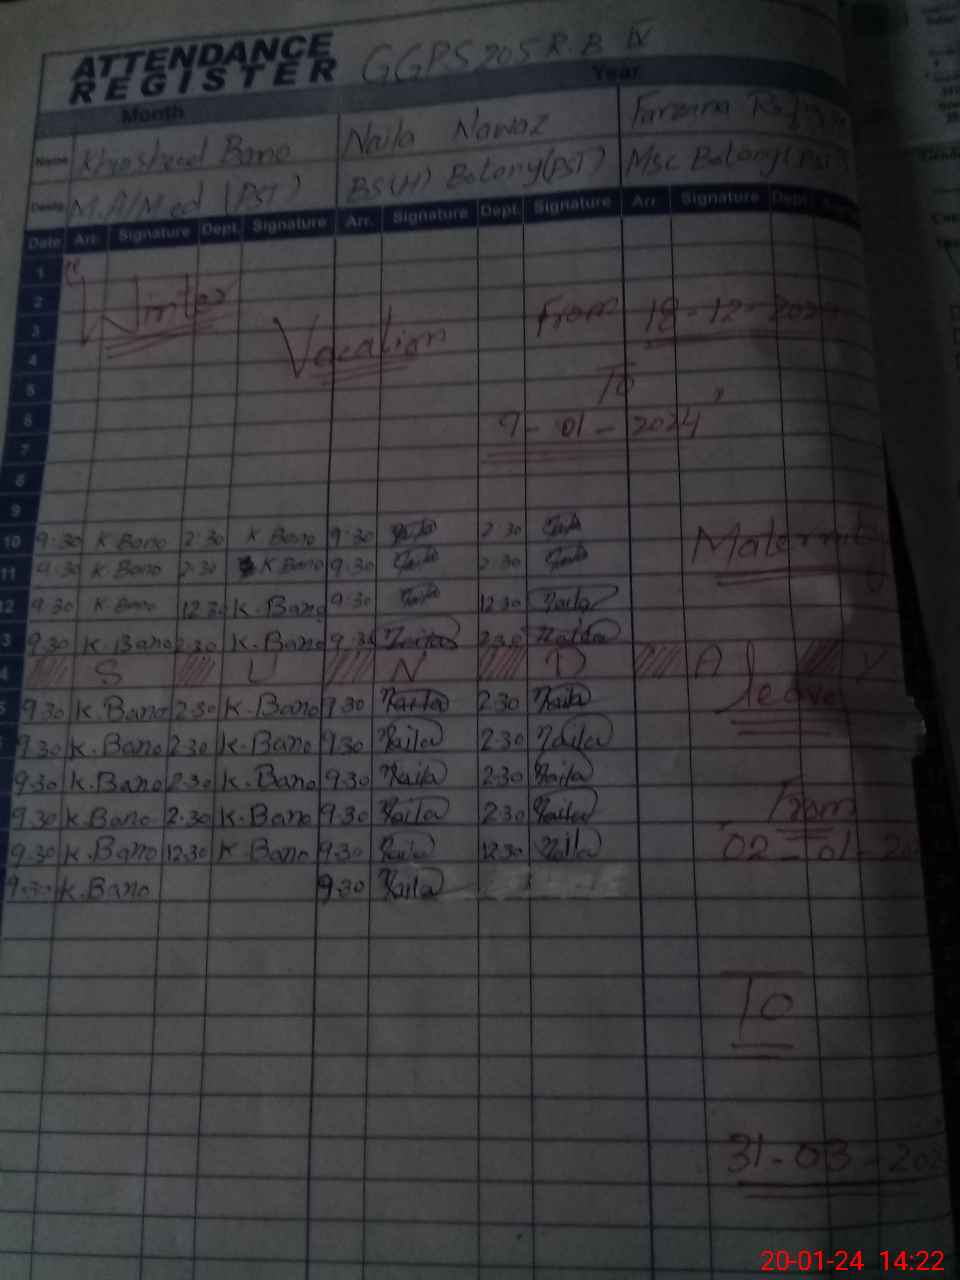 ATTENDANCE
REGISTER GGPS 205 R.B IV
Month Year
Name Bano Naila Nawaz Farzana
M.A/M.ed (PST) BS(H) Botony(PST) Msc Botony(PST)
Date Arr. Signature Dept. Signature Arr. Signature Dept. Signature Arr. Signature Dept.
1
2 Winter
3 Vacation From 18-12-
4
5 To
6 9-01-2024
7
8
9
10 9:30 K.Bano 2:30 K.Bano 9:30 Naila 2:30 Naila Maternity
11 9:30 K.Bano 2:30 K.Bano 9:30 Naila 2:30 Naila
12 9:30 K.Bano 12:30 K.Bano 9:30 Naila 12:30 Naila
3 9:30 K.Bano 2:30 K.Bano 9:30 Naila 2:30 Naila
4 S U N D A Y
5 9:30 K.Bano 2:30 K.Bano 9:30 Naila 2:30 Naila leave
9:30 K.Bano 2:30 K.Bano 9:30 Naila 2:30 Naila
9:30 K.Bano 2:30 K.Bano 9:30 Naila 2:30 Naila
9:30 K.Bano 2:30 K.Bano 9:30 Naila 2:30 Naila From
9:30 K.Bano 12:30 K.Bano 9:30 Naila 12:30 Naila 02-01-20
9:30 K.Bano 9:30 Naila
To
31-03-202
20-01-24 14:22